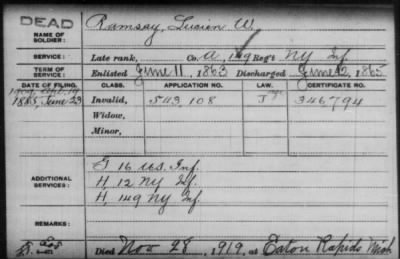 DEAD
NAME OF SOLDIER: Ramsay, Lucien W.
SERVICE: Late rank, Co. A, 149 Reg't NY Inf.
TERM OF SERVICE: Enlisted June 11, 1863 Discharged June 12, 1865
DATE OF FILING. CLASS. APPLICATION NO. LAW. CERTIFICATE NO.
1885, June 23 Invalid, 543 108 J 346794
Widow,
Minor,
ADDITIONAL SERVICES:
G 16 U.S. Inf.
H, 12 NY Inf.
H, 149 NY Inf.
REMARKS:
Died Nov 28, 1919, at Eaton Rapids Mich